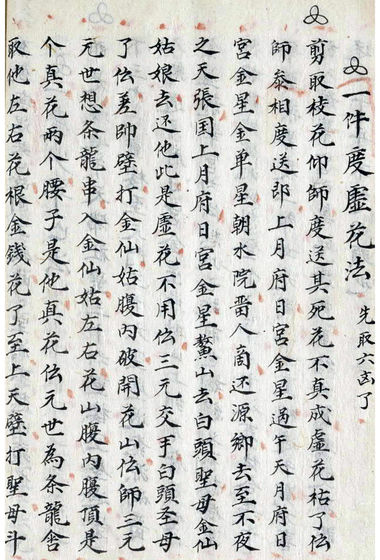 一件度虛花法 先取六凶了
剪取枝花仰師度送其死花不真成虛花枯了伝
師叅相度送郎上月府日宮金星過午天月府日
宮金星金單星朝水院啚人啇还源鄉去至不夜
之天張国上月府日宮金星鰲山去白頭聖母金仙
姑娘去还他此是虛花不用伝三元交手白頭圣母
了伝差帥壁打金仙姑腹內破開花山伝師三元
元世想条龍串入金仙姑左右花山腹內腹頂是
个真花兩个腰子是他真花伝元世為条龍舍
取他左右花根金錢花了至上天壁打聖母斗